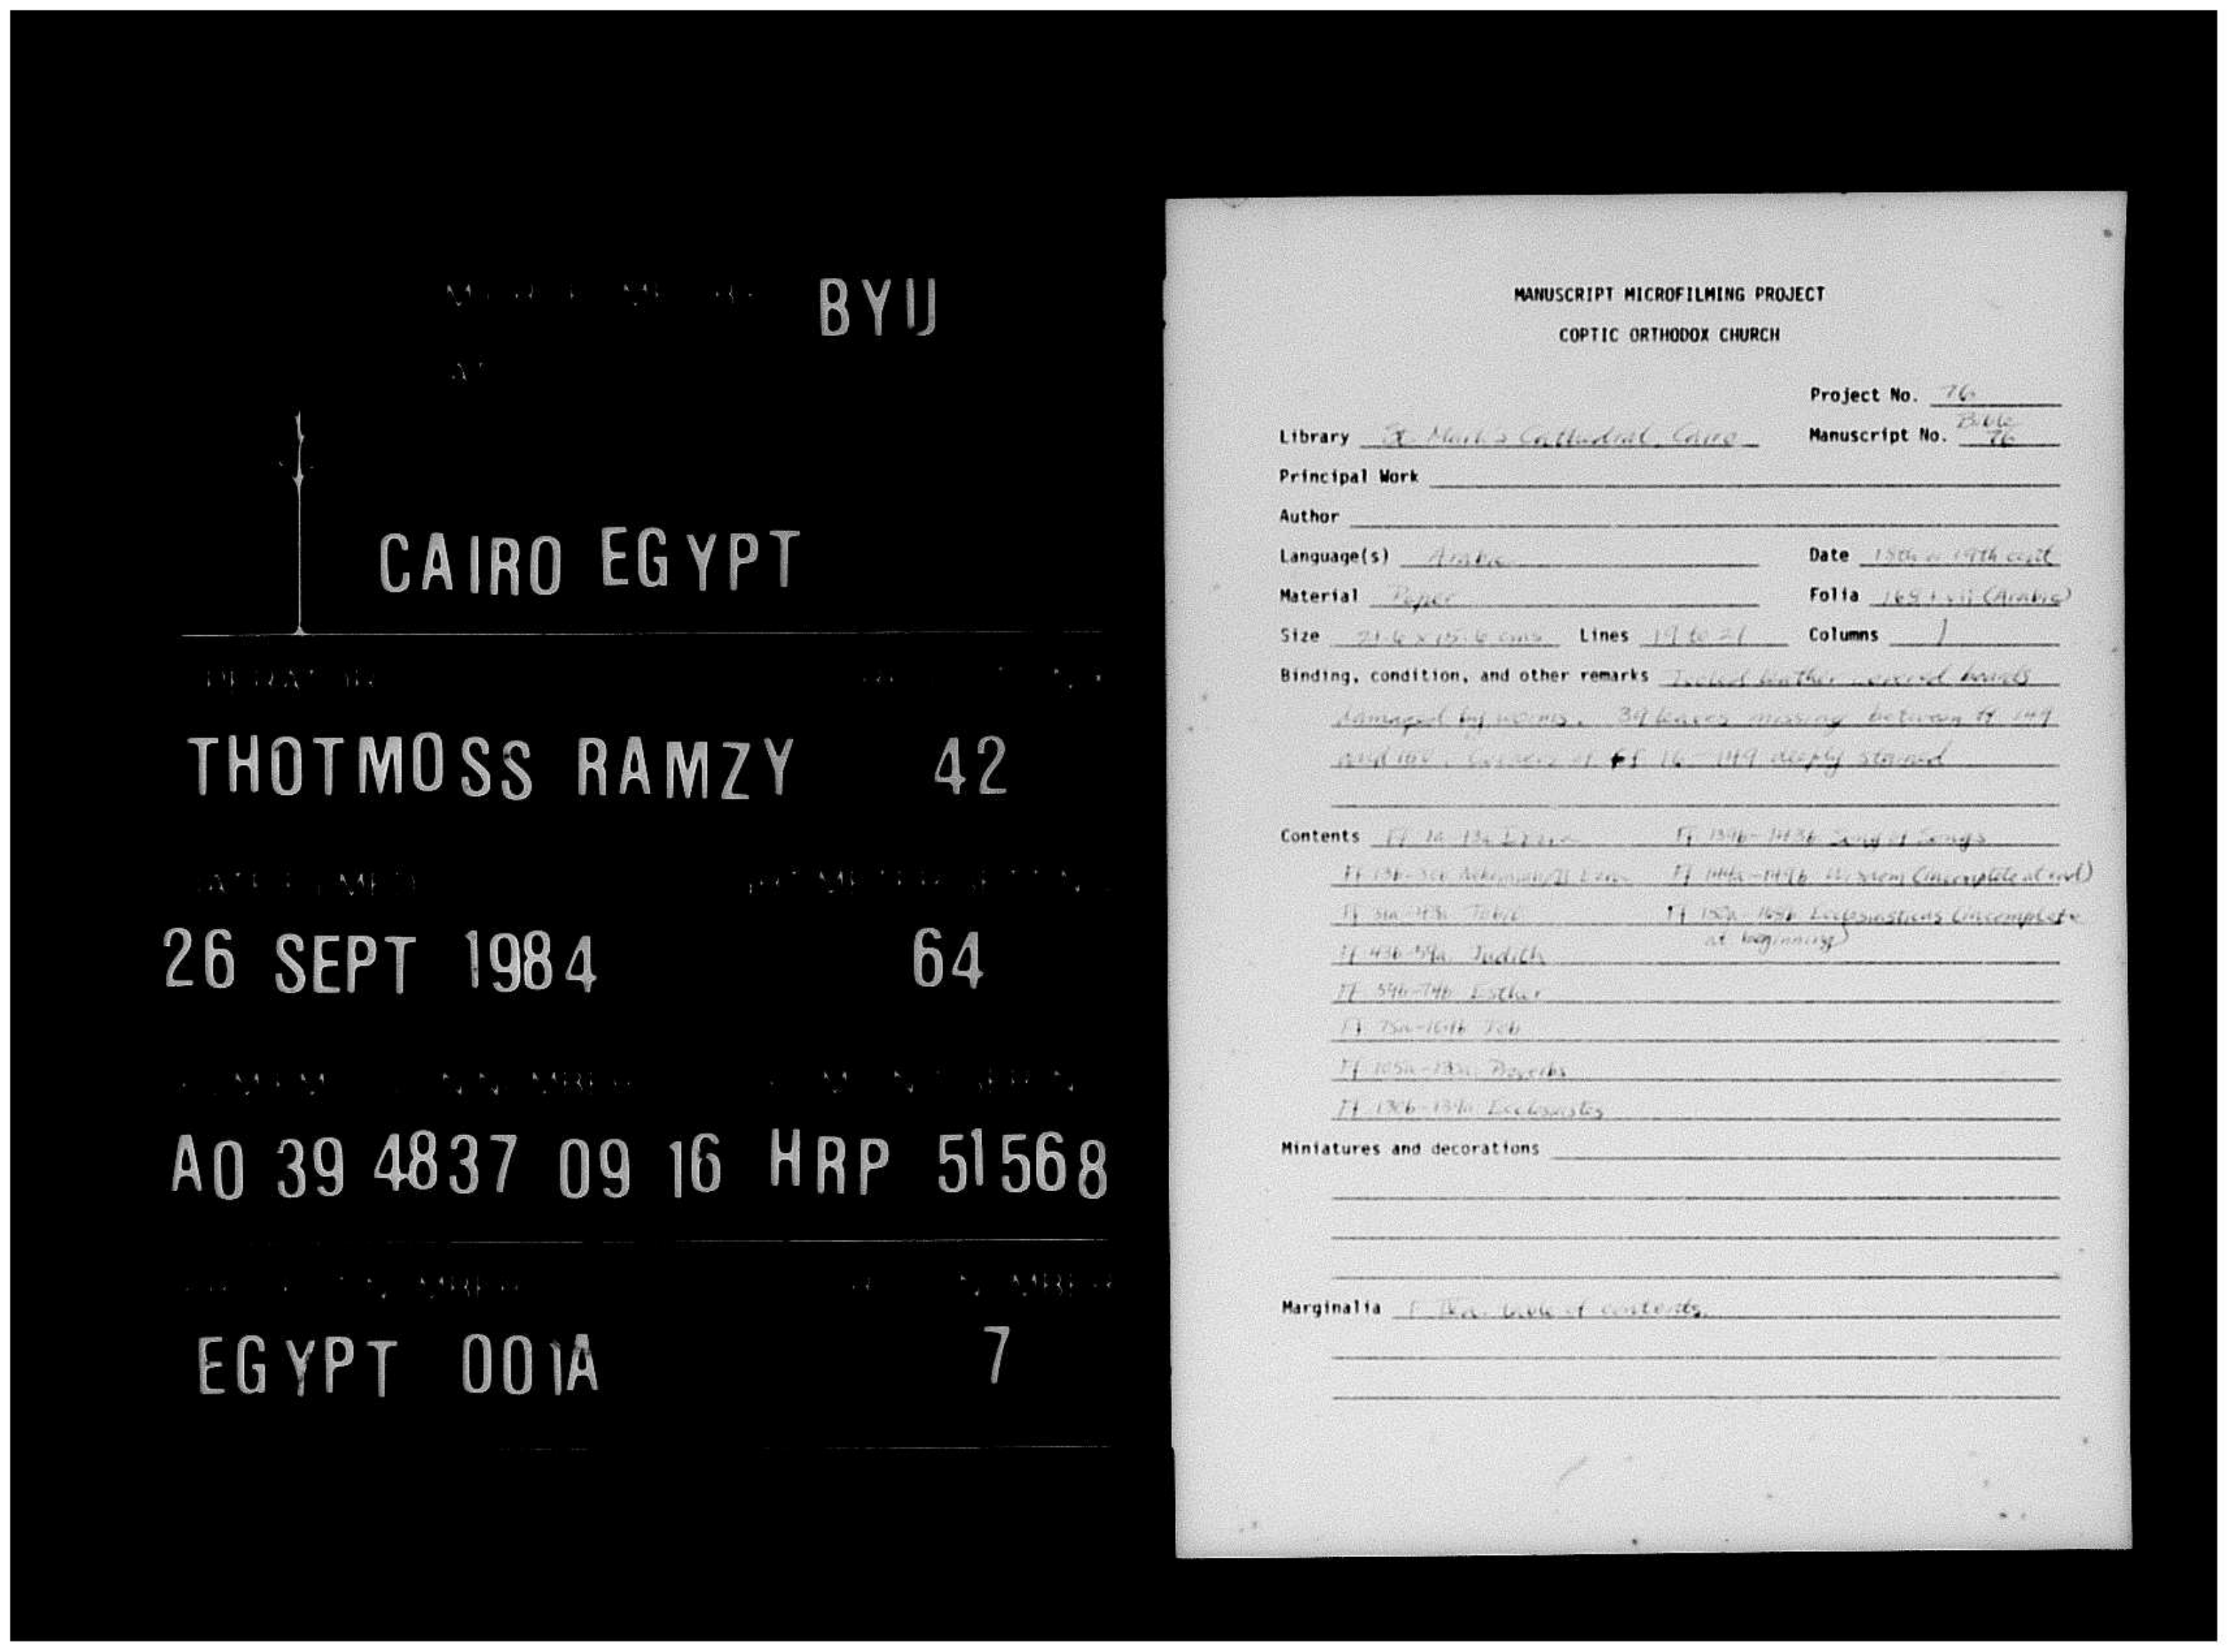 BYU
CAIRO EGYPT
THOTMOSS RAMZY 42
26 SEPT 1984 64
A0 39 4837 09 16 HRP 51568
EGYPT 001A 7
MANUSCRIPT MICROFILMING PROJECT
COPTIC ORTHODOX CHURCH
Project No. 76
Library St. Mark's Cathedral, Cairo Manuscript No. Bible 76
Principal Work
Author
Language(s) Arabic Date 18th or 19th cent
Material Paper Folia (Arabic)
Size 21.6 x 15.6 cms Lines 19 to 21 Columns 1
Binding, condition, and other remarks Tooled leather covered boards
damaged by worms. 39 leaves missing between ff 149
and 150. Corners of ff 16-149 deeply stained
Contents Ff 1a-13a Ezra Ff 139b-143b Song of Songs
Ff 13b- Nehemiah/II Ezra Ff 144a-149b Wisdom (incomplete at end)
Ff 31a-43a Tobit Ff 150a- Ecclesiasticus (incomplete
at beginning)
Ff 43b-59a Judith
Ff 59b-74b Esther
Ff 75a-104b Job
Ff 105a-130a Proverbs
Ff 130b-139a Ecclesiastes
Miniatures and decorations
Marginalia table of contents